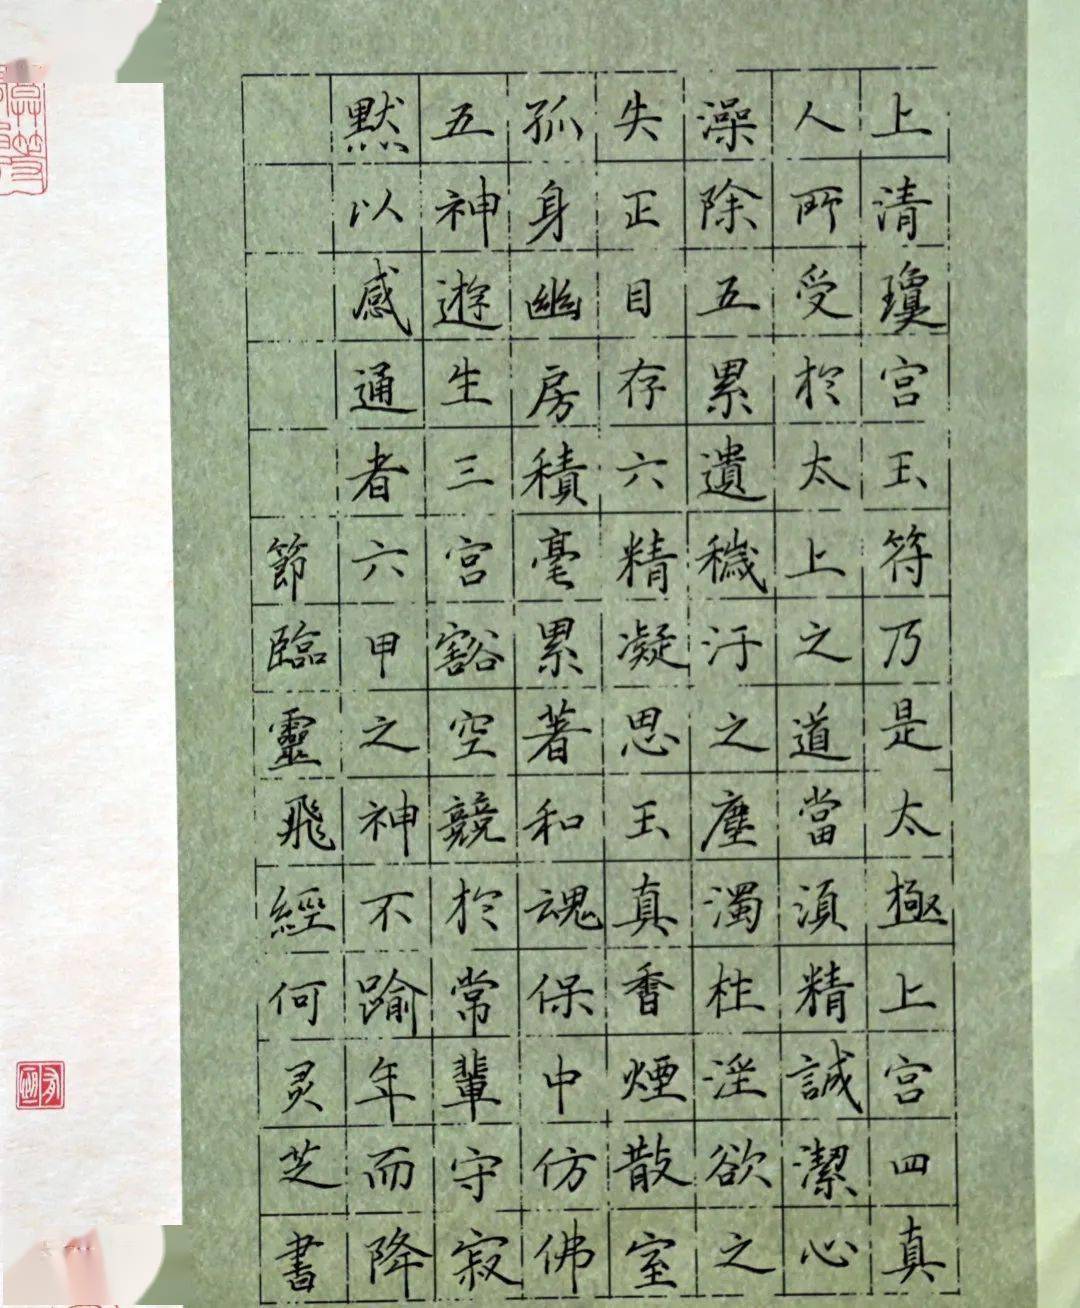 上清瓊宮玉符乃是太極上宮四真
人所受於太上之道當須精誠潔心
澡除五累遺穢汙之塵濁杜淫欲之
失正目存六精凝思玉真香煙散室
孤身幽房積毫累著和魂保中仿佛
五神遊生三宮豁空競於常輩守寂
默以感通者六甲之神不踰年而降
節臨靈飛經何灵芝書